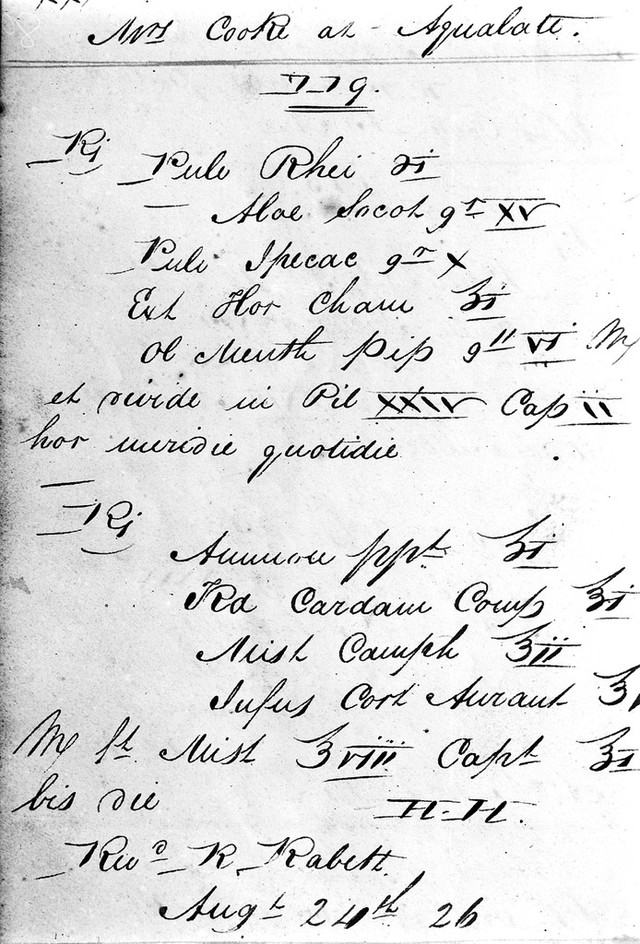 Mrs Cooke at Aqualate.
779.
Rj Pulv Rhei ʒi
Aloe Socot gr XV
Pulv Ipecac gr X
Ext Flor Cham ʒi
Ol Menth Pip gtt vi M
et divide in Pil XXIV Cap ii
hor meridie quotidie
Rj
Ammon ppt ʒi
Cardam Comp ʒi
Mist Camph ℥ii
Infus Cort Aurant
M ft Mist ℥viii Capt ℥i
bis die H.H.
Revd R Rabett.
Augt 24th 26